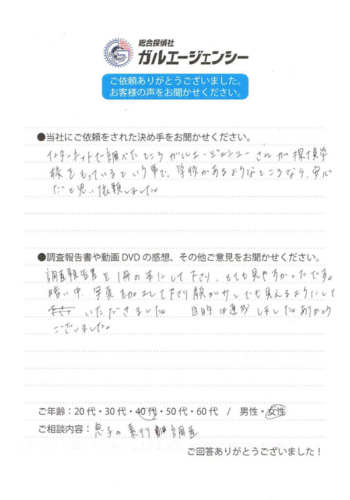 総合探偵社
ガルエージェンシー
ご依頼ありがとうございました。
お客様の声をお聞かせください。
●当社にご依頼をされた決め手をお聞かせください。
インターネットで調べたところ ガルエージェンシー さんが 探偵学
校をもっているという事で、学校があるようなところなら、安心
だと思い依頼しました。
●調査報告書や動画 DVD の感想、その他ご意見をお聞かせください。
調査報告書を1冊の本にして下さり、とても見やすかったです。
暗い中、写真を加工して下さり顔が少しでも見えるようにして
いただきました。 目的は達成しました。ありがとう
ございました。
ご年齢：20 代・30 代・40 代・50 代・60 代 / 男性・女性
ご相談内容：息子の素行調査
ご回答ありがとうございました！